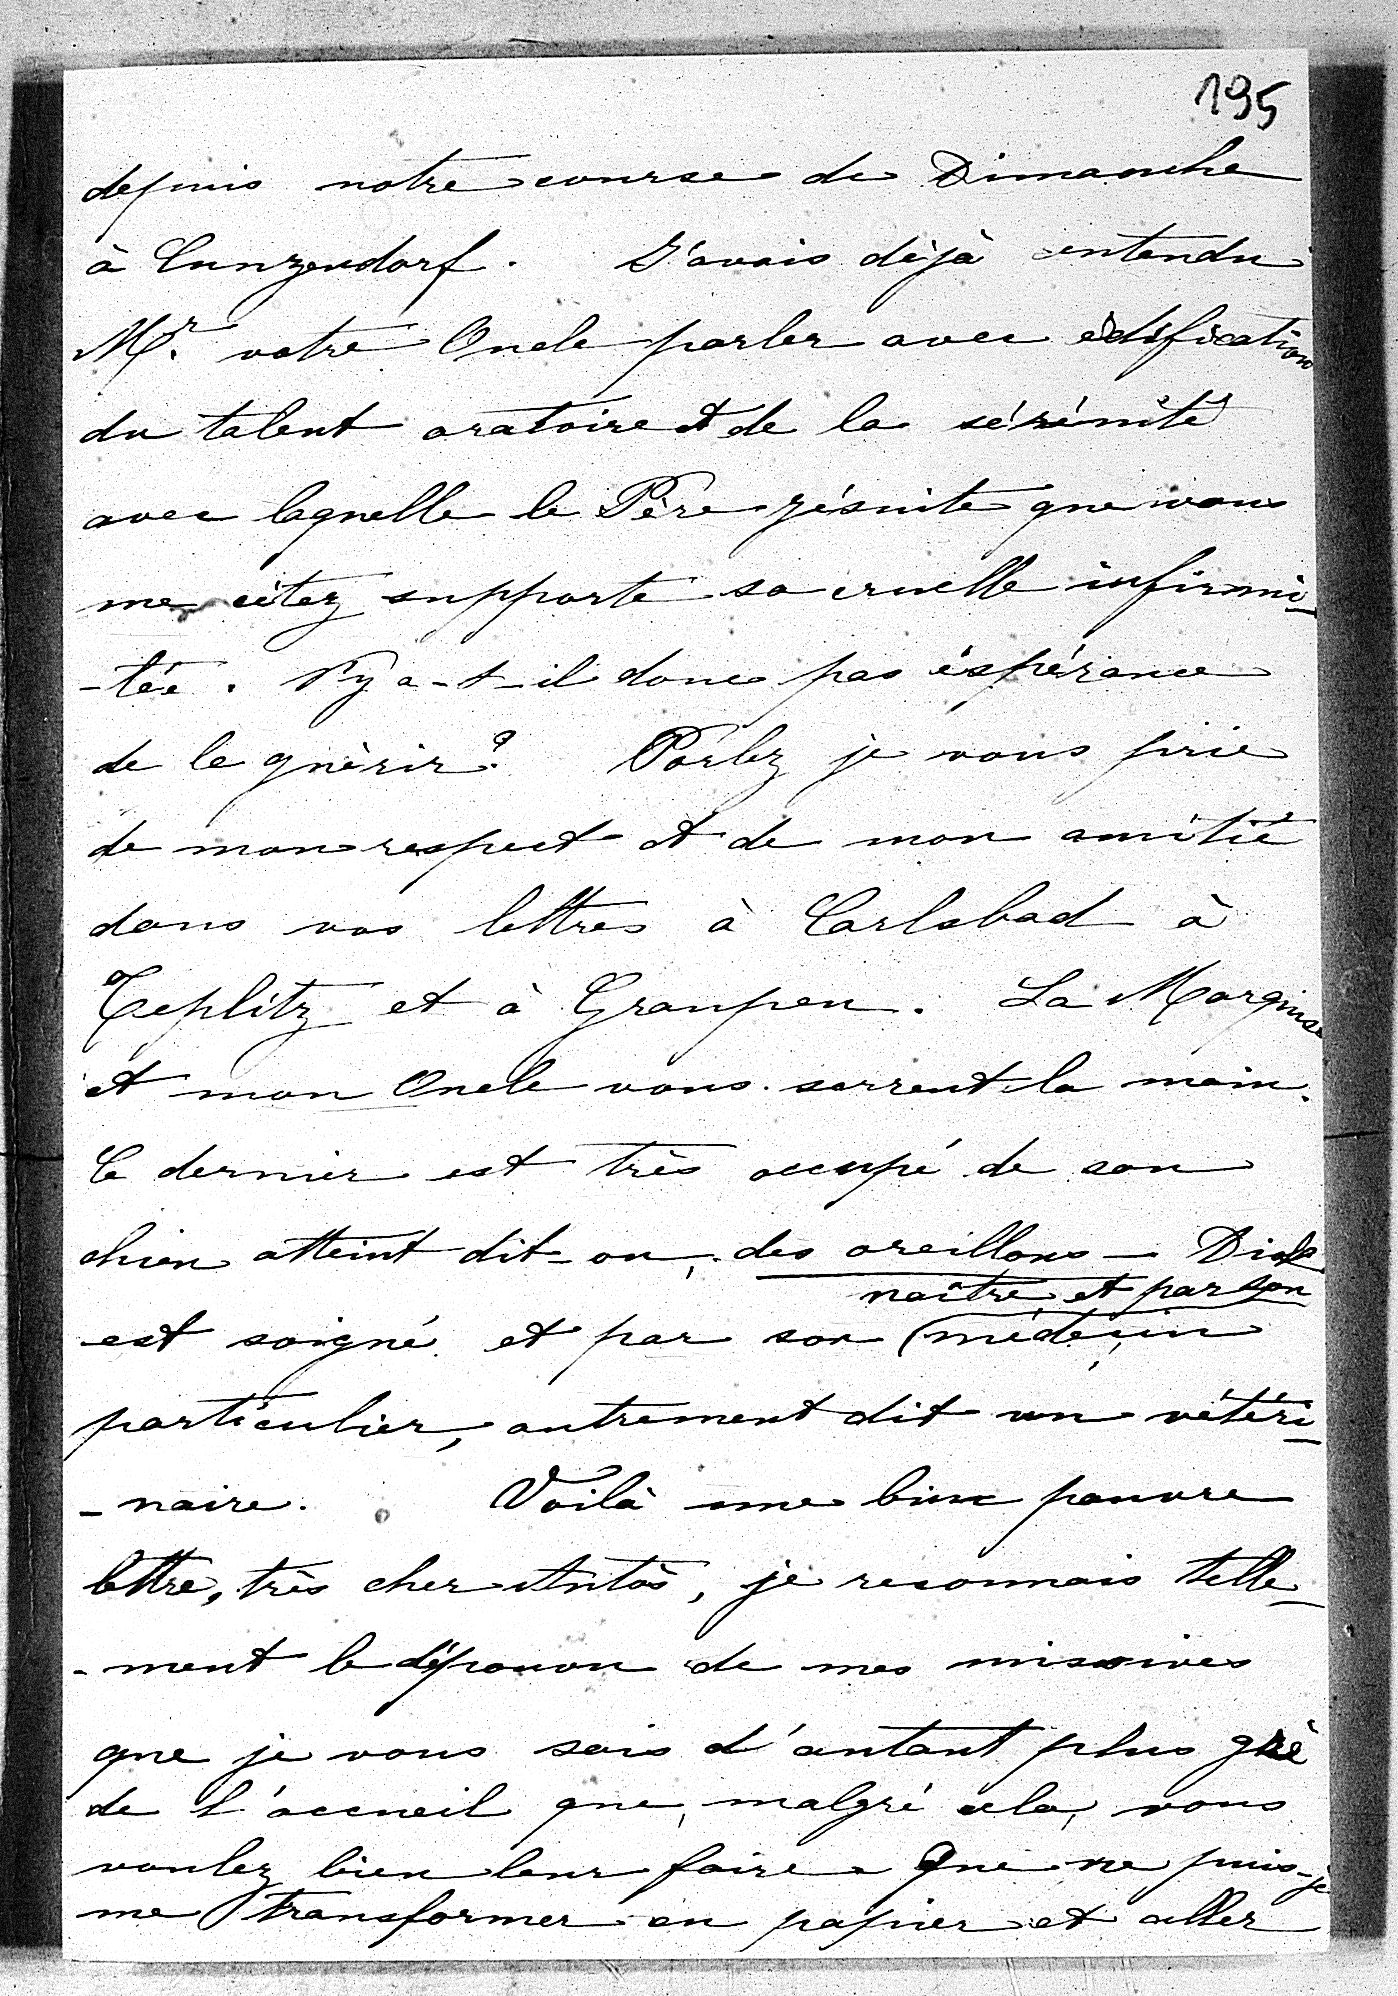 195
depuis notre course de Dimanche
à Cunzendorf. J'avais déjà entendu
Mr. votre Oncle parler avec édification
du talent oratoire et de la sérénité
avec laquelle le Père jésuite que vous
me citez supporte sa cruelle infirmi-
-tée. N'y a-t-il donc pas éspérance
de le guèrir? Parlez je vous prie
de mon respect et de mon amitié
dans vos lettres à Carlsbad à
Teplitz et à Graupen. La Marquise
et mon Oncle vous serrent la main.
Ce dernier est très occupé de son
chien atteint dit-on, des oreillons – Dick
maître et par son
est soigné et par son (médecin
particulier, autrement dit un vétéri-
-naire. Voilà une bien pauvre
lettre, très cher Antòs, je reconnais telle-
-ment le dépourvu de mes missives
que je vous sais d'autant plus gré
de l'accueil que, malgré cela, vous
voulez bien leur faire. Que ne puis-je
me transformer en papier et aller